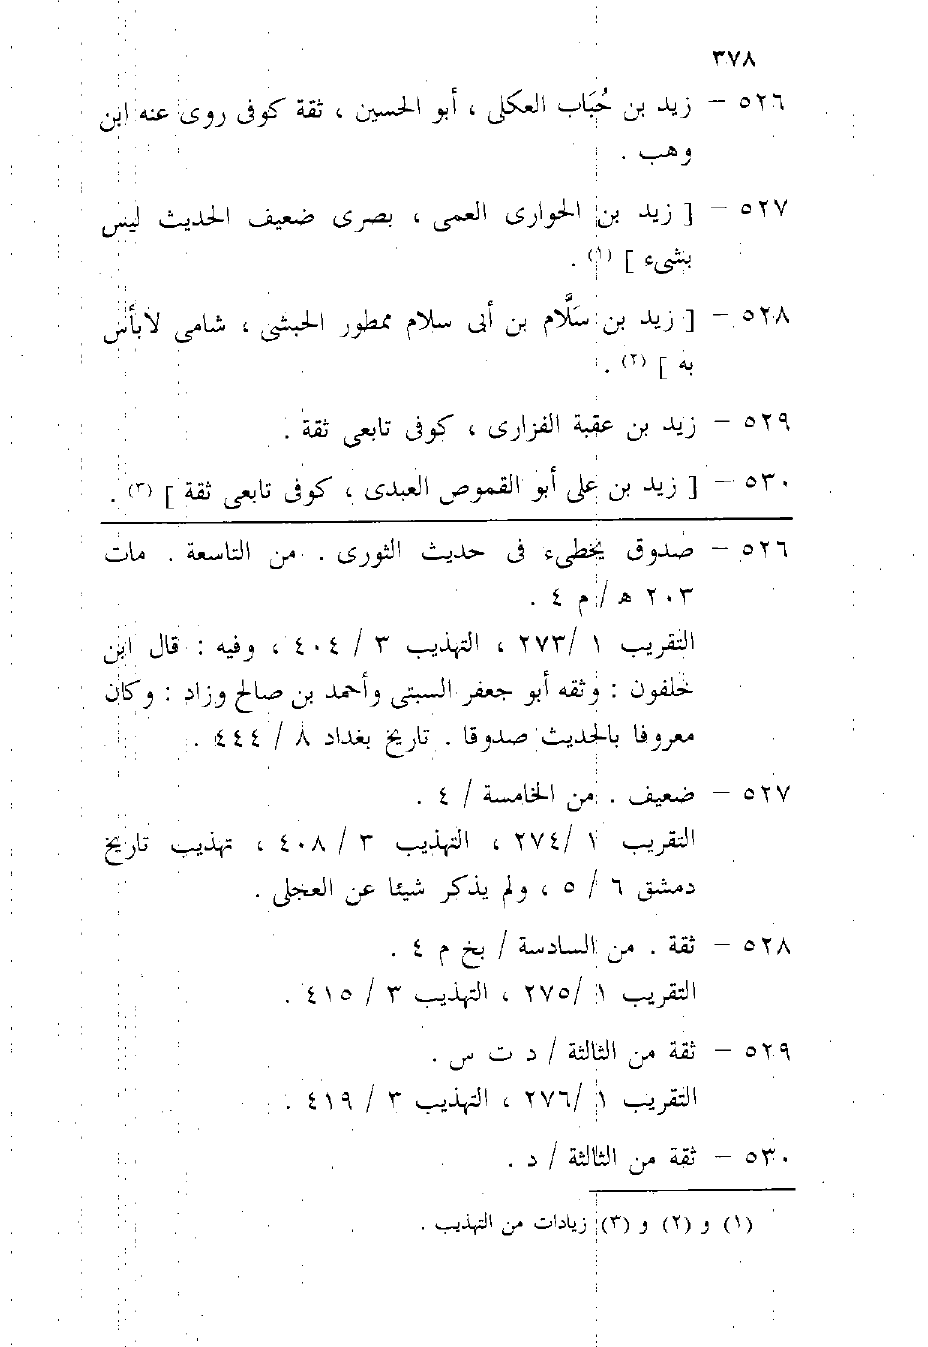 ٣٧٨
٥٢٦ – زيد بن حُبَاب العكلى ، أبو الحسين ، ثقة كوفى روى عنه ابن
وهب .
٥٢٧ – [ زيد بن الحوارى العمى ، بصرى ضعيف الحديث ليس
بشىء ] (١) .
٥٢٨ – [ زيد بن سَلَّام بن أبى سلام ممطور الحبشى ، شامى لابأس
به ] (٢) .
٥٢٩ – زيد بن عقبة الفزارى ، كوفى تابعى ثقة .
٥٣٠ – [ زيد بن على أبو القموص العبدى ، كوفى تابعى ثقة ] (٣) .
٥٢٦ – صدوق يخطىء فى حديث الثورى . من التاسعة . مات
٢٠٣ هـ / م ٤ .
التقريب ١ /٢٧٣ ، التهذيب ٣ / ٤٠٤ ، وفيه : قال ابن
خلفون : وثقه أبو جعفر السبتى وأحمد بن صالح وزاد : وكان
معروفا بالحديث صدوقا . تاريخ بغداد ٨ / ٤٤٤ .
٥٢٧ – ضعيف . من الخامسة / ٤ .
التقريب ١ /٢٧٤ ، التهذيب ٣ / ٤٠٨ ، تهذيب تاريخ
دمشق ٦ / ٥ ، ولم يذكر شيئا عن العجلى .
٥٢٨ – ثقة . من السادسة / بخ م ٤ .
التقريب ١ /٢٧٥ ، التهذيب ٣ / ٤١٥ .
٥٢٩ – ثقة من الثالثة / د ت س .
التقريب ١ /٢٧٦ ، التهذيب ٣ / ٤١٩ .
٥٣٠ – ثقة من الثالثة / د .
(١) و (٢) و (٣) زيادات من التهذيب .